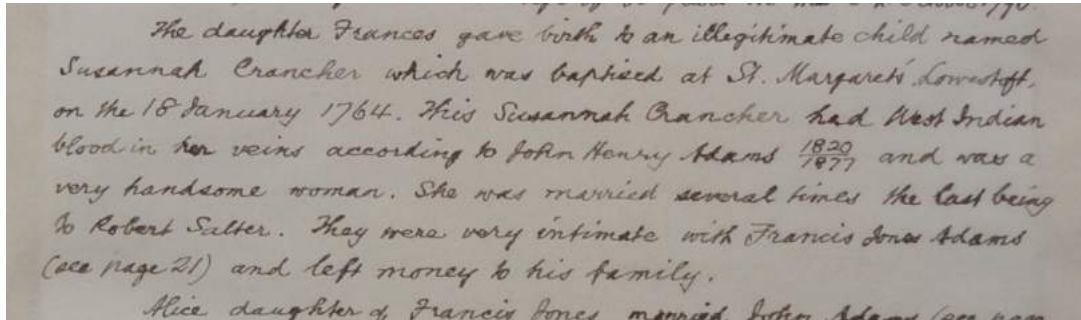 The daughter Frances gave birth to an illegitimate child named
Susannah Crancher which was baptised at St. Margarets' Lowestoft.
on the 18 January 1764. This Susannah Crancher had West Indian
blood in her veins according to John Henry Adams 1820/1877 and was a
very handsome woman. She was married several times the last being
to Robert Salter. They were very intimate with Francis Jones Adams
(see page 21) and left money to his family.
Alice daughter of Francis Jones married John Adams (see page